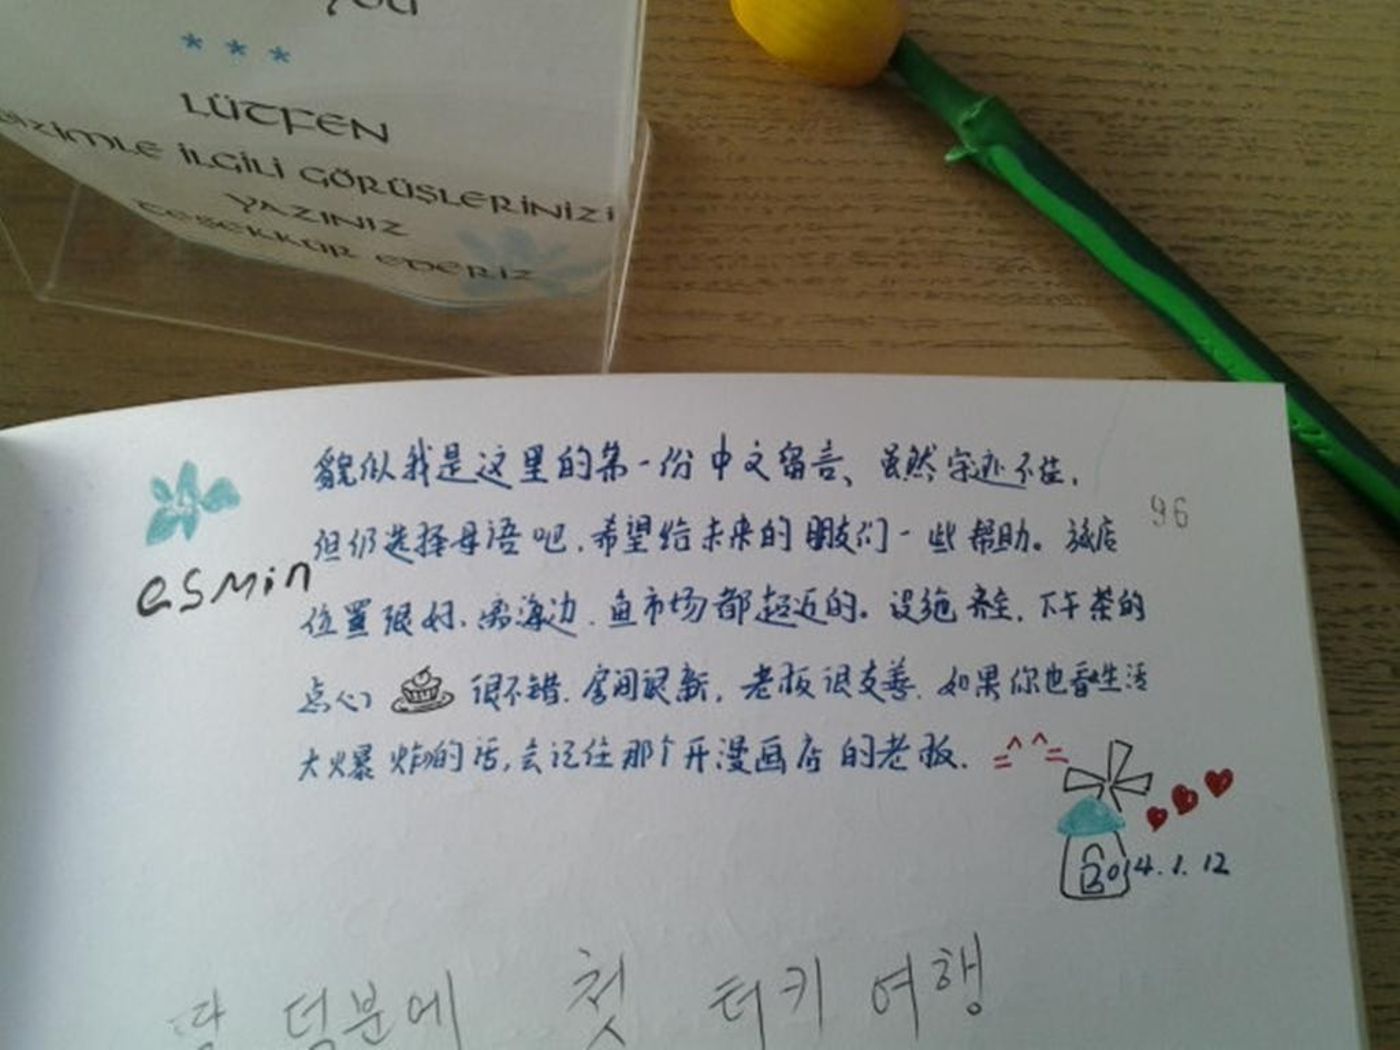 you
* * *
LÜTFEN
BİZİMLE İLGİLİ GÖRÜŞLERİNİZİ
YAZINIZ
TEŞEKKÜR EDERİZ
貌似我是这里的第一份中文留言、虽然字迹不佳,
但仍选择母语吧,希望给未来的朋友们一些帮助。旅店
96
esmin
位置很好,离海边、鱼市场都超近的。设施齐全,下午茶的
点心 很不错,房间很新,老板很友善,如果你也看生活
大爆炸的话,会记住那个开漫画店的老板. =^^=
2014.1.12
딸 덕분에 첫 터키 여행